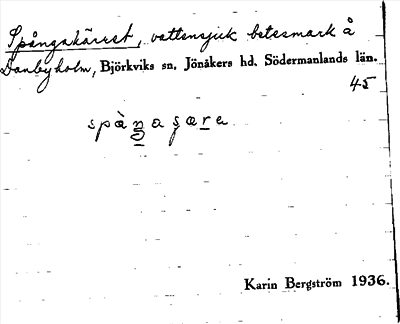 Spångakärret, vattensjuk betesmark å
Danbyholm, Björkviks sn. Jönåkers hd. Södermanlands län.
45
Karin Bergström 1936.